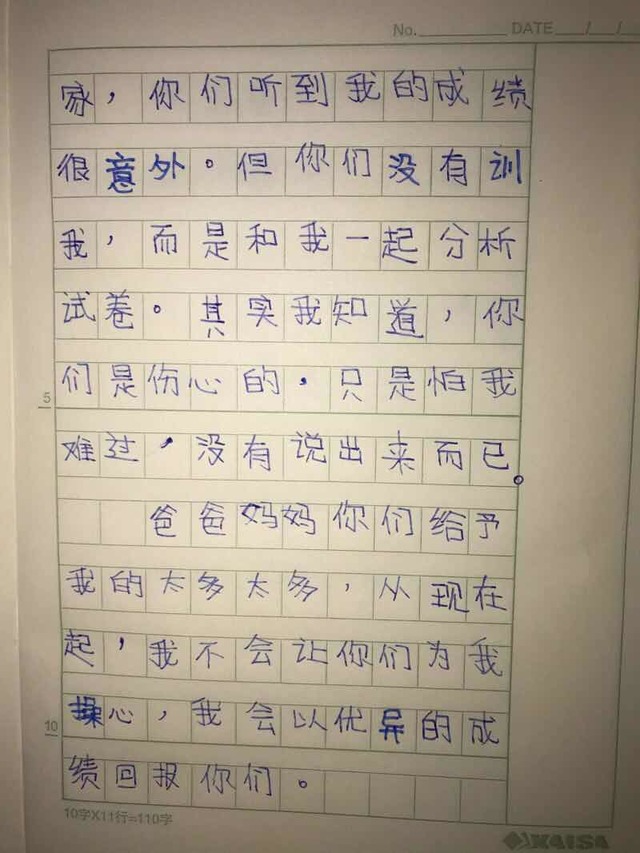 No. DATE / /
家，你们听到我的成绩
很意外。但你们没有训
我，而是和我一起分析
试卷。其实我知道，你
们是伤心的，只是怕我
5
难过，没有说出来而已。
爸爸妈妈你们给予
我的太多太多，从现在
起，我不会让你们为我
操心，我会以优异的成
10
绩回报你们。
10字X11行=110字
KAISA